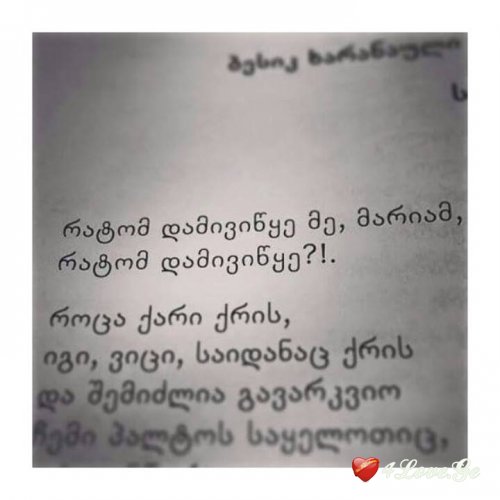 ბესიკ ხარანაული
რატომ დამივიწყე მე, მარიამ,
რატომ დამივიწყე?!.
როცა ქარი ქრის,
იგი, ვიცი, საიდანაც ქრის
და შემიძლია გავარკვიო
ჩემი პალტოს საყელოთიც,
4Love.Ge